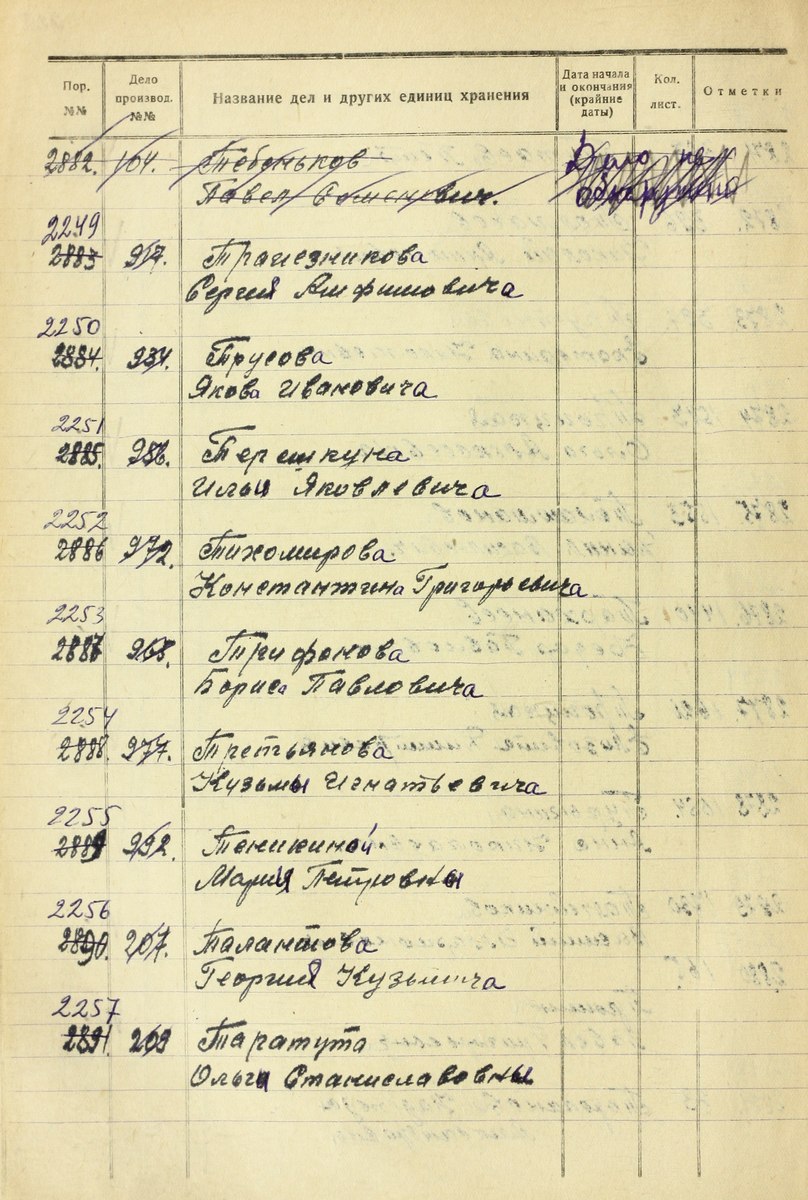 Пор. №№ Дело производ. №№ Название дел и других единиц хранения Дата начала и окончания (крайние даты) Кол. лист. Отметки
2882. 104. Тебеньков Дело не
Павел Семенович. обнаружено
2249
2883 917. Трапезникова
Сергия Амфимовича
2250
2884. 934. Трусова
Якова Ивановича
2251
2885. 956. Терешкуна
Ильи Яковлевича
2252
2886 972. Тихомирова
Константина Григорьевича
2253
2887 968. Трифонова
Бориса Павловича
2254
2888. 977. Третьянова
Кузьмы Игнатьевича
2255
2889 992. Теникиной
Марии Петровны
2256
2890. 207. Талантова
Георгия Кузьмича
2257
2891. 209 Таратута
Ольги Станиславовны